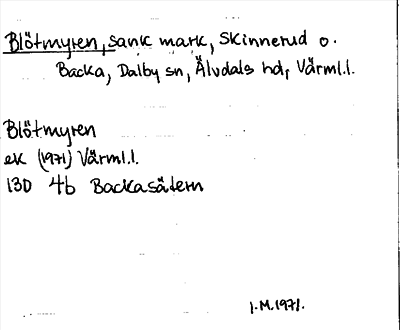 Blötmyren, sank mark, Skinnerud o.
Backa, Dalby sn, Älvdals hd, Värml.l.
Blötmyren
ek (1971) Värml.l.
130 4b Backasätern
J.M.1971.